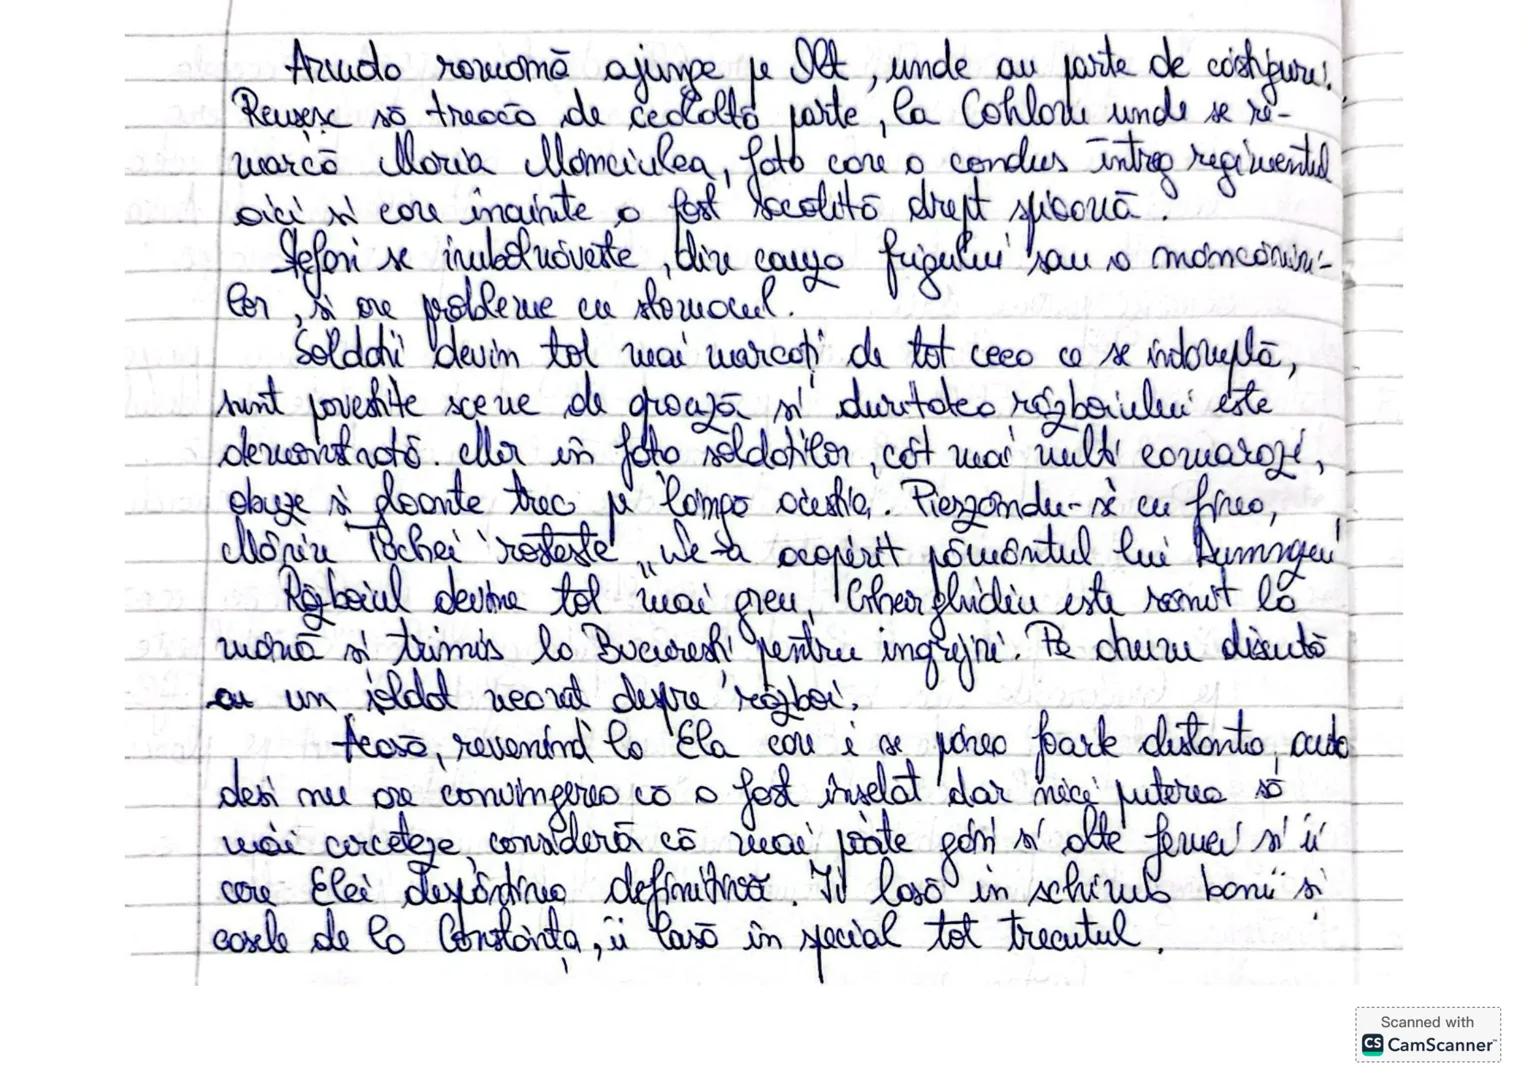 Armata română ajunge pe Olt, unde au parte de câștiguri.
Reușesc să treacă de cealaltă parte, la Cohlom unde se re-
marcă Maria Mămciulea, fata care a condus întreg regimentul
aici și care înainte a fost socolită drept spioană.
Ștefan se îmbolnăvește, din cauza frigului sau a mâncăruri-
lor, și are probleme cu stomacul.
Soldații devin tot mai marcați de tot ceea ce se întâmplă,
sunt povestite scene de groază și duritatea războiului este
demonstrată. Mor în fața soldaților, cât mai mulți camarazi,
obuze și gloanțe trec pe lângă aceștia. Pierzându-și cu firea,
Mărin Tuchei rostește „Ne-a acoperit pământul lui Dumnezeu
Războiul devine tot mai greu, Gheorghidiu este rănit la
mână și trimis la București pentru îngrijiri. Pe drum discută
cu un soldat neamț despre război.
Acasă, revenind la Ela care i se părea foarte distantă, acesta
deși nu are convingerea că a fost înșelat dar nici puterea să
mai cerceteze, consideră că mai poate găsi și alte femei și îi
cere Elei despărțirea definitivă. Îi lasă în schimb banii și
casele de la Constanța, îi lasă în special tot trecutul.
Scanned with
CS CamScanner